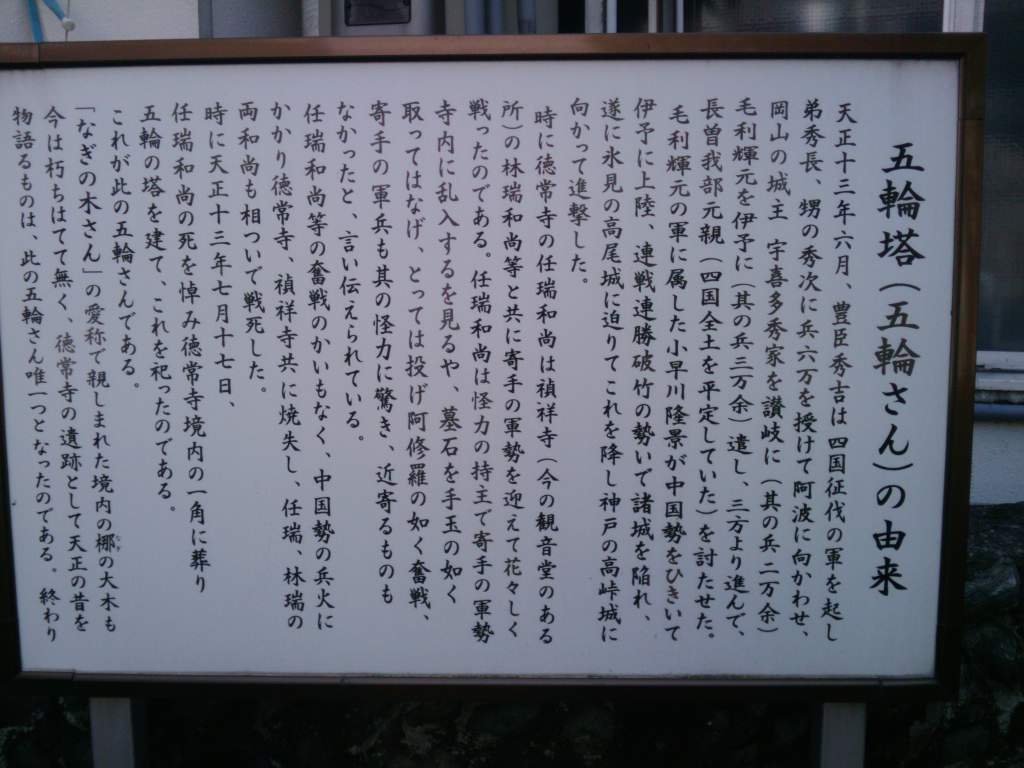 五輪塔（五輪さん）の由来
天正十三年六月、豊臣秀吉は四国征伐の軍を起し
弟秀長、甥の秀次に兵六万を授けて阿波に向かわせ、
岡山の城主　宇喜多秀家を讃岐に（其の兵二万余）
毛利輝元を伊予に（其の兵三万余）遣し、三方より進んで、
長曽我部元親（四国全土を平定していた）を討たせた。
毛利輝元の軍に属した小早川隆景が中国勢をひきいて
伊予に上陸、連戦連勝破竹の勢いで諸城を陥れ、
遂に氷見の高尾城に迫りてこれを降し神戸の高峠城に
向かって進撃した。
時に徳常寺の任瑞和尚は禎祥寺（今の観音堂のある
所）の林瑞和尚等と共に寄手の軍勢を迎えて花々しく
戦ったのである。任瑞和尚は怪力の持主で寄手の軍勢
寺内に乱入するを見るや、墓石を手玉の如く
取ってはなげ、とっては投げ阿修羅の如く奮戦、
寄手の軍兵も其の怪力に驚き、近寄るものも
なかったと、言い伝えられている。
任瑞和尚等の奮戦のかいもなく、中国勢の兵火に
かかり徳常寺、禎祥寺共に焼失し、任瑞、林瑞の
両和尚も相ついで戦死した。
時に天正十三年七月十七日、
任瑞和尚の死を悼み徳常寺境内の一角に葬り
五輪の塔を建て、これを祀ったのである。
これが此の五輪さんである。
「なぎの木さん」の愛称で親しまれた境内の梛の大木も
今は朽ちはてて無く、徳常寺の遺跡として天正の昔を
物語るものは、此の五輪さん唯一つとなったのである。終わり